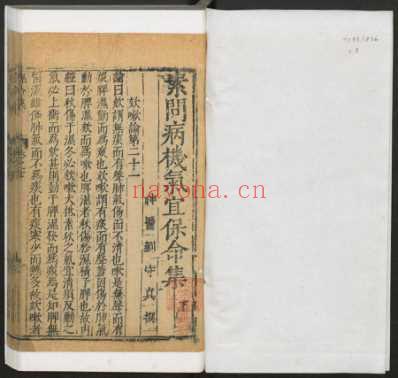 素問病機氣宜保命集 下
神醫劉守真撰
欬嗽論第二十一
論曰欬謂無痰而有聲肺氣傷而不清也嗽是無聲而有
痰脾濕動而爲痰也欬嗽謂有痰而有聲蓋因傷於肺氣
動於脾濕欬而爲嗽也脾濕者秋傷於濕積于脾也故内
經曰秋傷于濕冬必欬嗽大抵素秋之氣宜清
氣必上衝而爲欬甚則動于脾濕發而爲痰也是知脾
無留濕雖傷肺氣而不爲痰也有痰寒少而熱多故欬嗽者
aixin.com